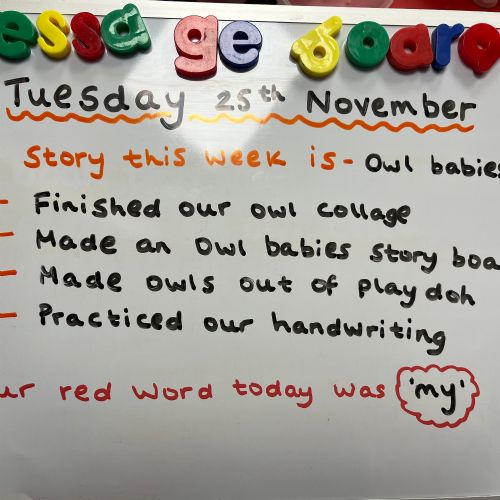 essage board
Tuesday 25th November
Story this week is - Owl babies
- Finished our owl collage
- Made an Owl babies story boa
- Made owls out of playdoh
- Practiced our handwriting
ur red word today was 'my'